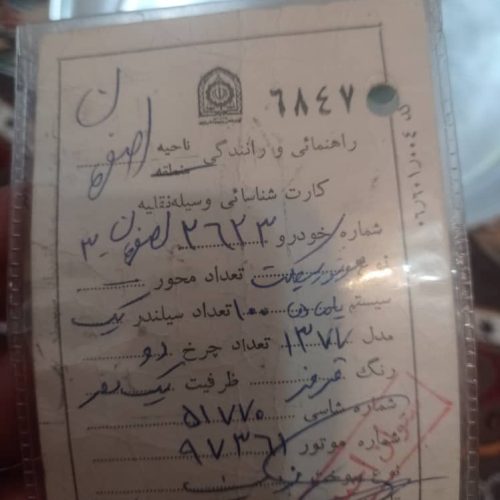 ۶۸۴۷
راهنمائی و رانندگی ناحیه منطقه اصفهان
کارت شناسائی وسیله نقلیه
شماره خودرو ۲۶۲۳ اصفهان ۳
نوع موتورسیکلت تعداد محور
سیستم ۱۰۰ تعداد سیلندر یک
مدل ۱۳۷۲ تعداد چرخ دو
رنگ قرمز ظرفیت یک نفر
شماره شاسی ۵۱۷۷۰
شماره موتور ۹۷۳۶۱
نوع سوخت